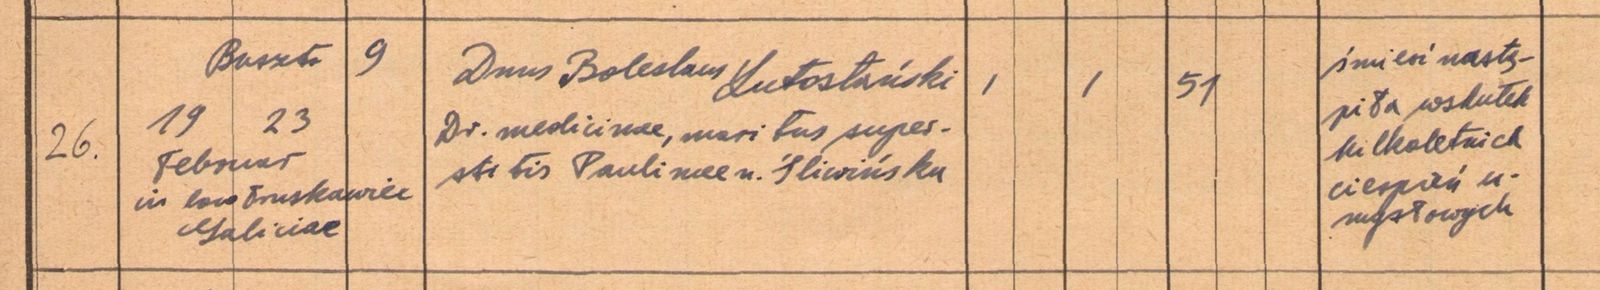 26.
Baszt. 9
19 23
Februar
in loco Truskawiec
Galiciae
Dnus Boleslaus Lutostański
Dr. medicinae, maritus super-
stitis Paulinae n. Śliwińska
1 1 51
śmierć nastą-
piła wskutek
kilkoletnich
cierpień u-
mysłowych